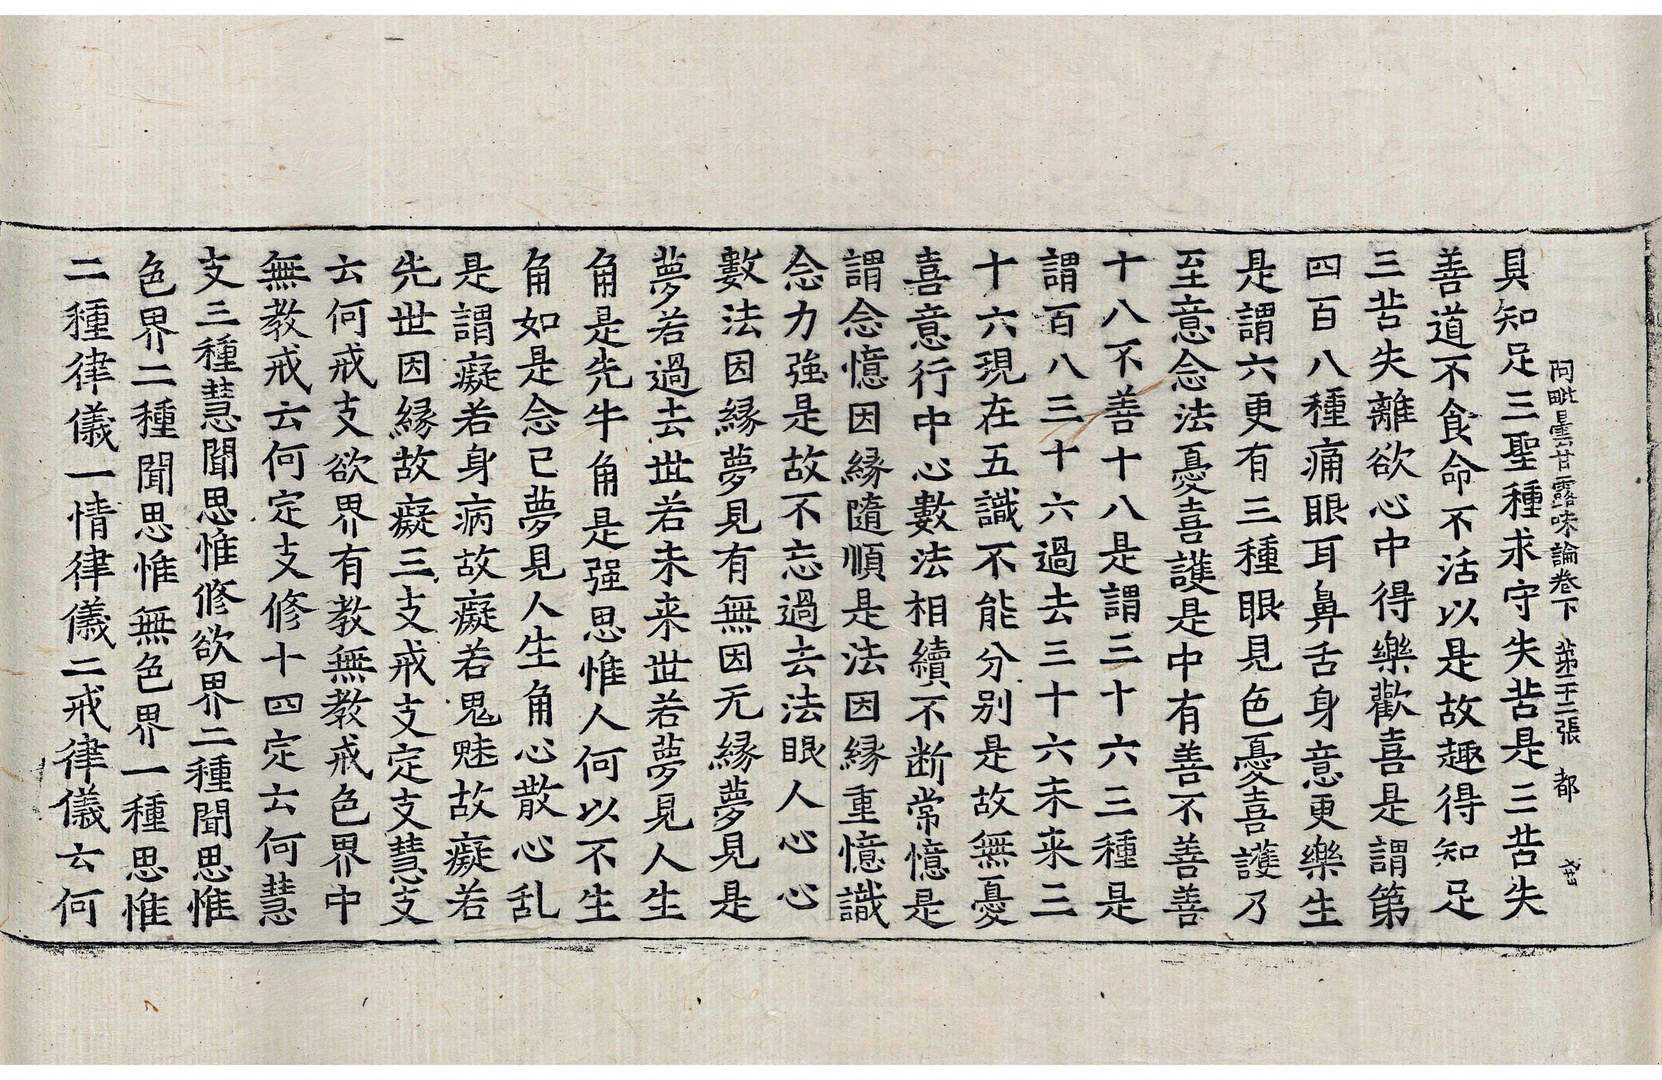 阿毗曇甘露味論卷下 第二十二張 都
具知足三聖種求守失苦是三苦失
善道不食命不活以是故趣得知足
三苦失離欲心中得樂歡喜是謂第
四百八種痛眼耳鼻舌身意更樂生
是謂六更有三種眼見色憂喜護乃
至意念法憂喜護是中有善不善善
十八不善十八是謂三十六三種是
謂百八三十六過去三十六未来三
十六現在五識不能分別是故無憂
喜意行中心數法相續不断常憶是
謂念憶因縁隨順是法因縁重憶識
念力強是故不忘過去法眼人心心
數法因縁夢見有無因无縁夢見是
夢若過去世若未来世若夢見人生
角是先牛角是强思惟人何以不生
角如是念已夢見人生角心散心乱
是謂癡若身病故癡若鬼魅故癡若
先世因縁故癡三支戒支定支慧支
云何戒支欲界有教無教戒色界中
無教戒云何定支修十四定云何慧
支三種慧聞思惟修欲界二種聞思惟
色界二種聞思惟無色界一種思惟
二種律儀一情律儀二戒律儀云何